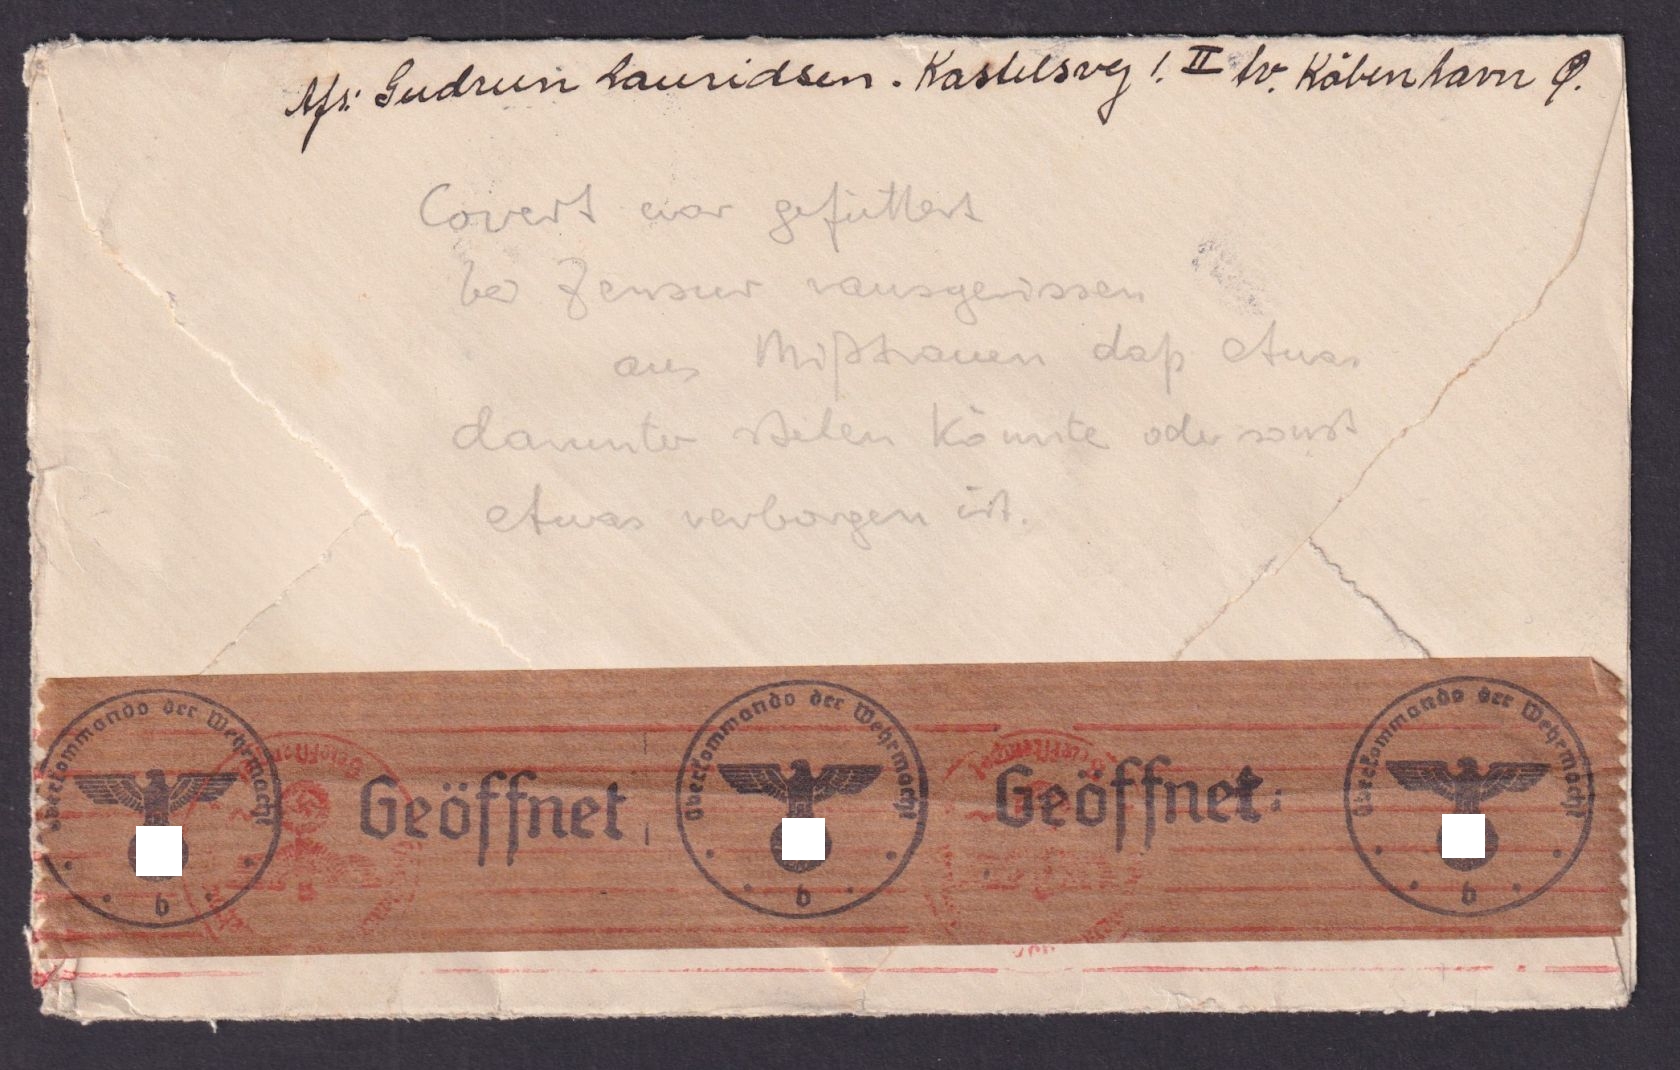 Afs: Gudrun Lauridsen. Kastelsvej 1. II tv. Köbenhavn Ø.
Covert war gefüttert
bei Zensur rausgerissen
aus Mißtrauen daß etwas
darunter stehen könnte oder sonst
etwas verborgen ist.
Oberkommando der Wehrmacht
b
Geöffnet
Oberkommando der Wehrmacht
b
Geöffnet
Oberkommando der Wehrmacht
b